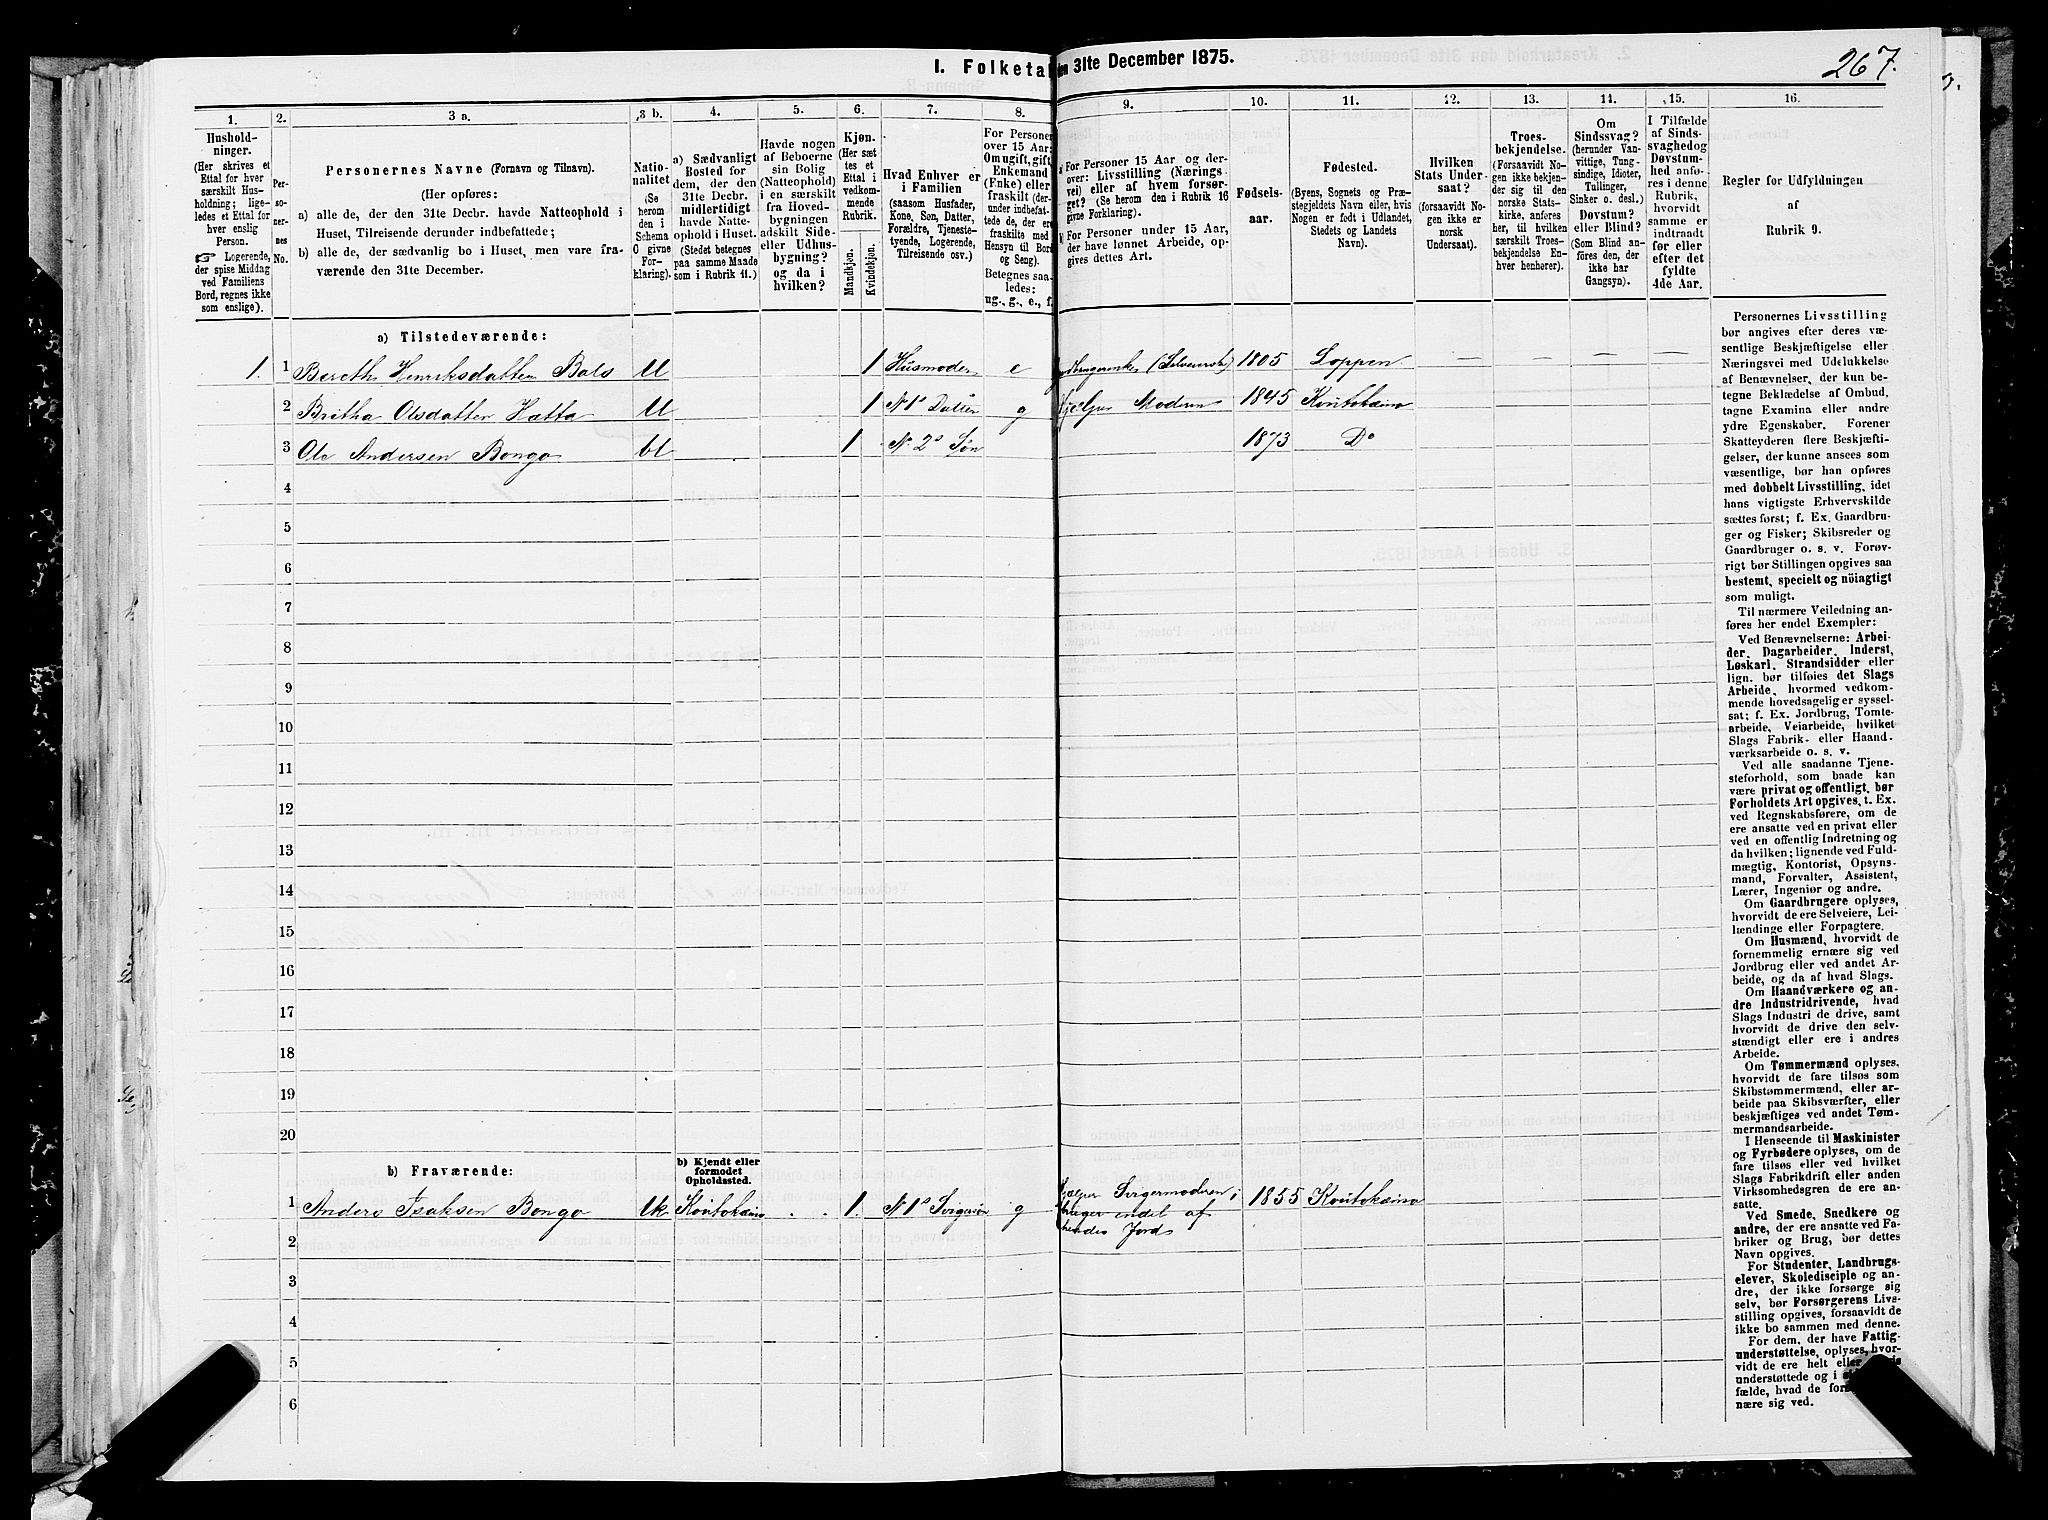 I. Folketa
en 31te December 1875.
267.
1.
2.
3 a.
3 b.
4.
5.
6.
7.
8.
9.
10.
11.
12.
13.
14.
15.
16.
Hushold-
ninger.
(Her skrives et
Ettal for hver
særskilt Hus-
holdning; lige-
ledes et Ettal for
hver enslig
Person.
☞ Logerende,
der spise Middag
ved Familiens
Bord, regnes ikke
som enslige).
Per-
so-
ner-
nes
No.
Personernes Navne (Fornavn og Tilnavn).
(Her opføres:
a) alle de, der den 31te Decbr. havde Natteophold i
Huset, Tilreisende derunder indbefattede;
b) alle de, der sædvanlig bo i Huset, men vare fra-
værende den 31te December.
Natio-
nalitet
(Se
herom
den i
Schema
O givne
For-
klaring).
a) Sædvanligt
Bosted for
dem, der den
31te Decbr.
midlertidigt
havde Natte-
ophold i Huset.
(Stedet betegnes
paa samme Maade
som i Rubrik 11.)
Havde nogen
af Beboerne
sin Bolig
(Natteophold)
i en særskilt
fra Hoved-
bygningen
adskilt Side-
eller Udhus-
bygning?
og da i
hvilken?
Kjøn.
(Her sæt
tes et
Ettal i
vedkom-
mende
Rubrik.
Mandkjøn.
Kvindekjøn.
Hvad Enhver er
i Familien
(saasom Husfader,
Kone, Søn, Datter,
Forældre, Tjeneste-
tyende, Logerende,
Tilreisende osv.)
For Personer
over 15 Aar:
Om ugift, gift,
Enkemand
(Enke) eller
fraskilt (der-
under indbefat-
tede de, der ere
fraskilte med
Hensyn til Bord
og Seng).
Betegnes saa-
ledes:
ug., g., e., f.
a) For Personer 15 Aar og der-
over: Livsstilling (Nærings
vei) eller af hvem forsør-
get? (Se herom den i Rubrik 16
givne Forklaring).
b) For Personer under 15 Aar,
der have lønnet Arbeide, op-
gives dettes Art.
Fødsels-
aar.
Fødested.
(Byens, Sognets og Præ-
stegjeldets Navn eller, hvis
Nogen er født i Udlandet,
Stedets og Landets
Navn).
Hvilken
Stats Under-
saat?
(forsaavidt No-
gen ikke er
norsk
Undersaat).
Troes-
bekjendelse.
(Forsaavidt No-
gen ikke bekjen-
der sig til den
norske Stats-
kirke, anføres
her, til hvilken
særskilt Troes-
bekjendelse En-
hver henhører).
Om
Sindssvag?
(herunder Van-
vittige, Tung-
sindige, Idioter,
Tullinger,
Sinker o. desl.)
Døvstum?
eller Blind?
(Som Blind an-
föres den, der
ikke har
Gangsyn).
I Tilfælde
af Sinds-
svaghed og
Døvstum-
hed anfø-
res i denne
Rubrik,
hvorvidt
samme er
indtraadt
før eller
efter det
fyldte
4de Aar.
Regler for Udfyldningen
af
Rubrik 9.
a) Tilstedeværende:
1. 1 Bereth Henriksdatter Bals U 1 Husmoder e 1805 Loppen — — — —
2 Britha Olsdatter Hætta U 1 No 1s Datter g Hjelper Modren 1845 Koutokeino
3 Ole Andersen Bongo U 1 No 2s Søn 1873 Do
4
5
6
7
8
9
10
11
12
13
14
15
16
17
18
19
20
b) Fraværende:
b) Kjendt eller
formodet
Opholdssted.
1 Anders Isaksen Bongo Koutokeino 1. No 1s Svigersøn g Hjelper Svigermoderen; 1855 Koutokeino
bruger endel af
hendes Jord
2
3
4
5
6
Personernes Livsstilling
bør angives efter deres væ-
sentlige Beskjæftigelse eller
Næringsvei med Udelukkelse
af Benævnelser, der kun be-
tegne Beklædelse af Ombud,
tagne Examina eller andre
ydre Egenskaber. Forener
Skatteyderen flere Beskjæfti-
gelser, der kunne ansees som
væsentlige, bør han opføres
med dobbelt Livsstilling, idet
hans vigtigste Erhvervskilde
sættes først; f. Ex. Gaardbru-
ger og Fisker; Skibsreder og
Gaardbruger o. s. v. Forøv-
rigt bør Stillingen opgives saa
bestemt, specielt og nöiagtigt
som muligt.
Til nærmere Veiledning an-
føres her endel Exempler:
Ved Benævnelserne: Arbei-
der, Dagarbeider, Inderst,
Løskarl, Strandsidder eller
lign. bør tilføies det Slags
Arbeide, hvormed vedkom-
mende hovedsagelig er syssel-
sat; f. Ex. Jordbrug, Tomte-
arbeide, Veiarbeide, hvilket
Slags Fabrik- eller Haand-
værksarbeide o. s. v.
Ved alle saadanne Tjene-
steforhold, som baade kan
være privat og offentligt, bør
Forholdets Art opgives, t. Ex.
ved Regnskabsførere, om de
ere ansatte ved en privat eller
ved en offentlig Indretning og
da hvilken; lignende ved Fuld-
mægtig, Kontorist, Opsyns-
mand, Forvalter, Assistent,
Lærer, Ingeniør og andre.
Om Gaardbrugere oplyses,
hvorvidt de ere Selveiere, Lei-
lændinge eller Forpagtere.
Om Husmænd, hvorvidt de
fornemmelig ernære sig ved
Jordbrug eller ved andet Ar-
beide, og da af hvad Slags.
Om Haandværkere og an-
dre Industridrivende, hvad
Slags Industri de drive, samt
hvorvidt de drive den selv-
stændigt eller ere i andres
Arbeide.
Om Tømmermænd oplyses,
hvorvidt de fare tilsøs som
Skibstømmermænd, eller ar-
beide paa Skibsværfter, eller
beskjæftiges ved andet Tøm-
mermandsarbeide.
I Henseende til Maskinister
og Fyrbødere oplyses, om de
fare tilsøs eller ved hvilket
Slags Fabrikdrift eller anden
Virksomhedsgren de ere an-
satte.
Ved Smede, Snedkere og
andre, der ere ansatte ved Fa-
briker og Brug, bør dettes
Navn opgives.
For Studenter, Landbrugs-
elever, Skoledisciple og an-
dre, der ikke forsørge sig
selv, bør Forsørgerens Livs-
stilling opgives, forsaavidt de
ikke bo sammen med denne.
For dem, der have Fattig-
understøttelse, oplyses, hvor-
vidt de ere helt eller
understøttede og i
fælde, hvad de for
nære sig ved.